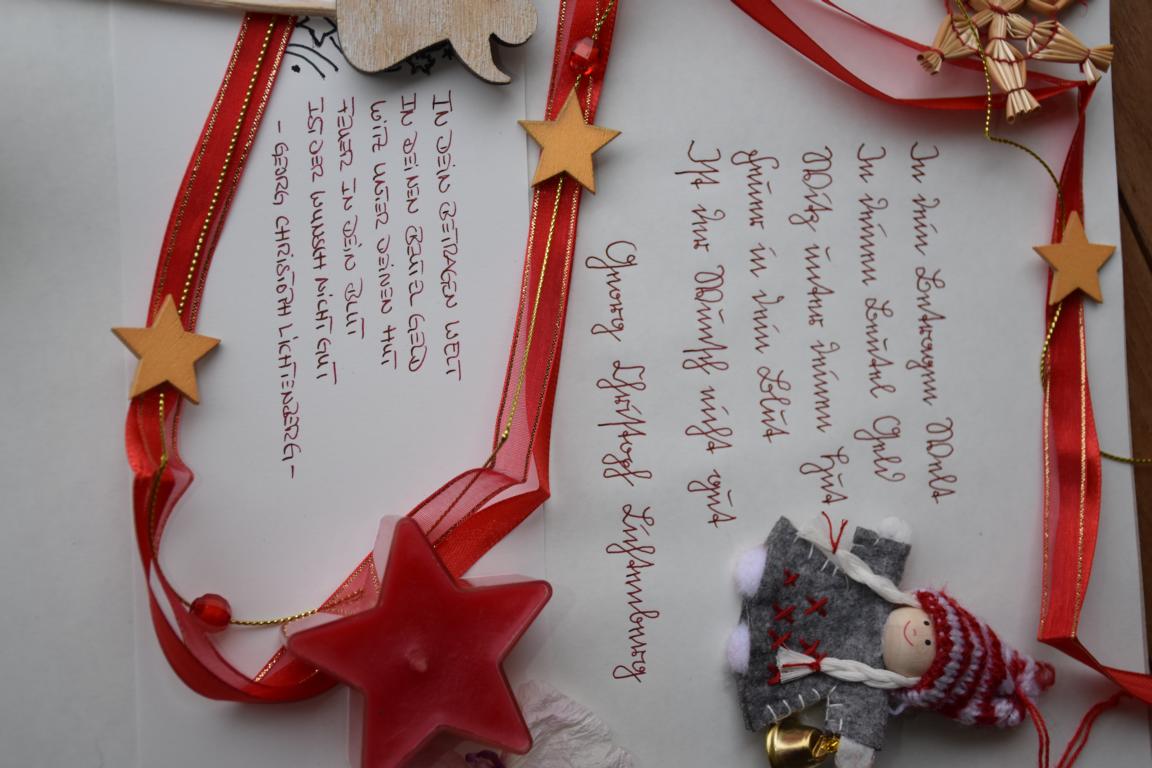 In dein Betragen Welt
In deinen Beutel Geld
Witz unter deinen Hut
Feuer in dein Blut
Ist der Wunsch nicht gut
Georg Christoph Lichtenberg
IN DEIN BETRAGEN WELT
IN DEINEN BEUTEL GELD
WITZ UNTER DEINEN HUT
FEUER IN DEIN BLUT
IST DER WUNSCH NICHT GUT
- GEORG CHRISTOPH LICHTENBERG -